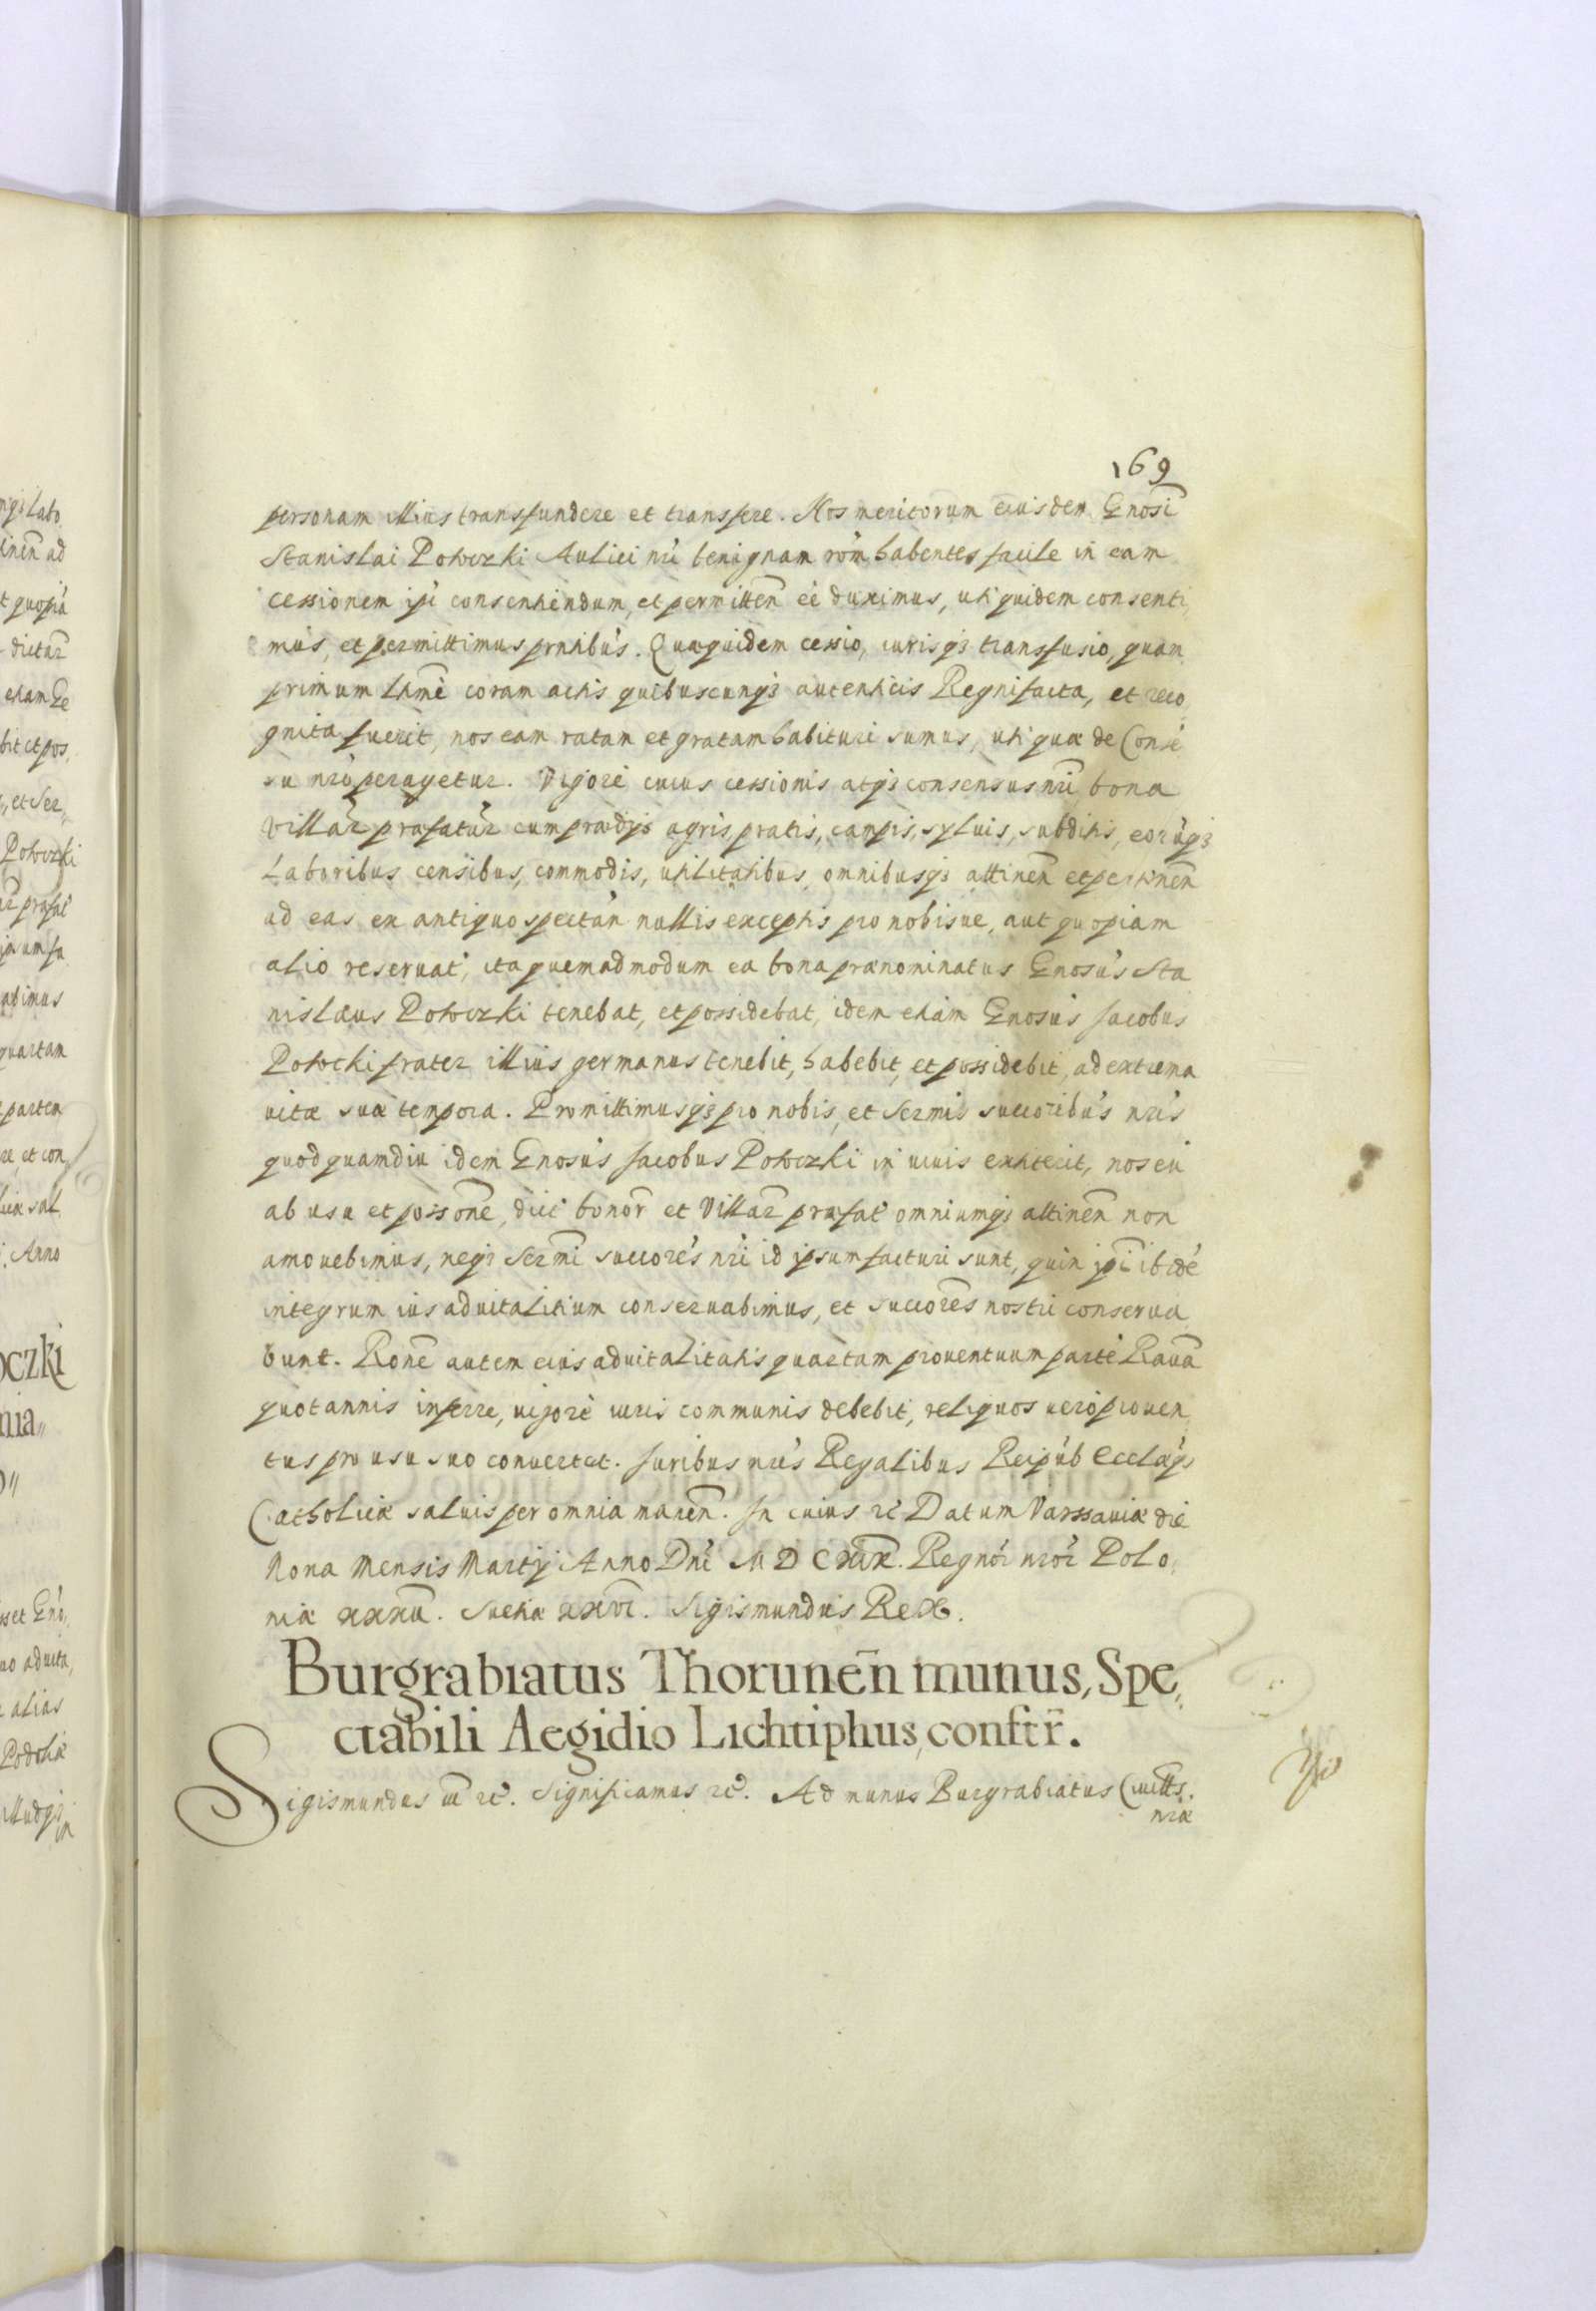 169
personam illius transfundere et transfere. Nos meritorum eiusdem Gnosi
Stanislai Potoczki Aulici nri benignam rom habentes facile in eam
cessionem ipi consentiendum, et permitten ee duximus, uti quidem consenti,
mus, et permittimus pntibus. Quaequidem cessio, iurisq3 transfusio, quam
primum ltime coram actis quibuscunq3 autenticis Regni facta, et reco,
gnita fuerit, nos eam ratam et gratam habituri sumus, uti quae de Conse
su nro peragetur. Vigore cuius cessionis atq3 consensus nri bona
Villar praefatar cum praedijs agris, pratis, campis, syluis, subditis, eoruq3
Laboribus censibus, commodis, utilitatibus, omnibusq3 attinen et pertinen
ad eas ex antiquo spectan nullis exceptis pro nobisue, aut quopiam
alio reseruat, ita quemadmodum ea bona praenominatus Gnosus Sta
nislaus Potoczki tenebat, et possidebat, idem etiam Gnosus Jacobus
Potocki frater illius germanus tenebit, habebit, et possidebit, ad extrema
uitae suae tempora. Promittimusq3 pro nobis, et Sermis succoribus nris
quod quamdiu idem Gnosus Jacobus Potoczki in uiuis extiterit, nos eu
ab usu et possone, dict bonor et Villar praefat omniumq3 attinen non
amouebimus, neq3 Sermi succores nri id ipsum facturi sunt, quin ipi ibide
integrum ius aduitalitium conseruabimus, et succores nostri conserua
bunt. Rone autem eius aduitalitatis quartam prouentuum parte Raua
quotannis inferre, uigore iuris communis debebit, reliquos uero prouen,
tus pro usu suo conuertet. Juribus nris Regalibus Reipub Ecclaeq3
Catholicae saluis per omnia manen. In cuius rc Datum Varssauiae die
Nona Mensis Martij Anno Dni MDCXIX. Regnor nror Polo,
niae XXXII. Sueciae XXVI. Sigismundus Rex.
Burgrabiatus Thorunen munus, Spe,,
ctabili Aegidio Lichtiphus, confir.
Sigismundus III rc. Significamus rc. Ad munus Burgrabiatus Ciuitts.
nrae